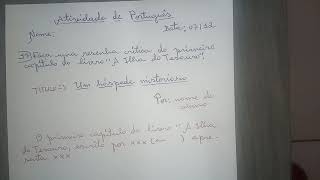 Atividade de Português
Nome: Data: 07/12
Faça uma resenha crítica do primeiro
capítulo do livro "A Ilha do Tesouro".
TÍTULO => Um hóspede misterioso
Por: nome do
aluno
O primeiro capítulo do livro "A Ilha
do Tesouro, escrito por xxx ( ) apre-
senta xxx